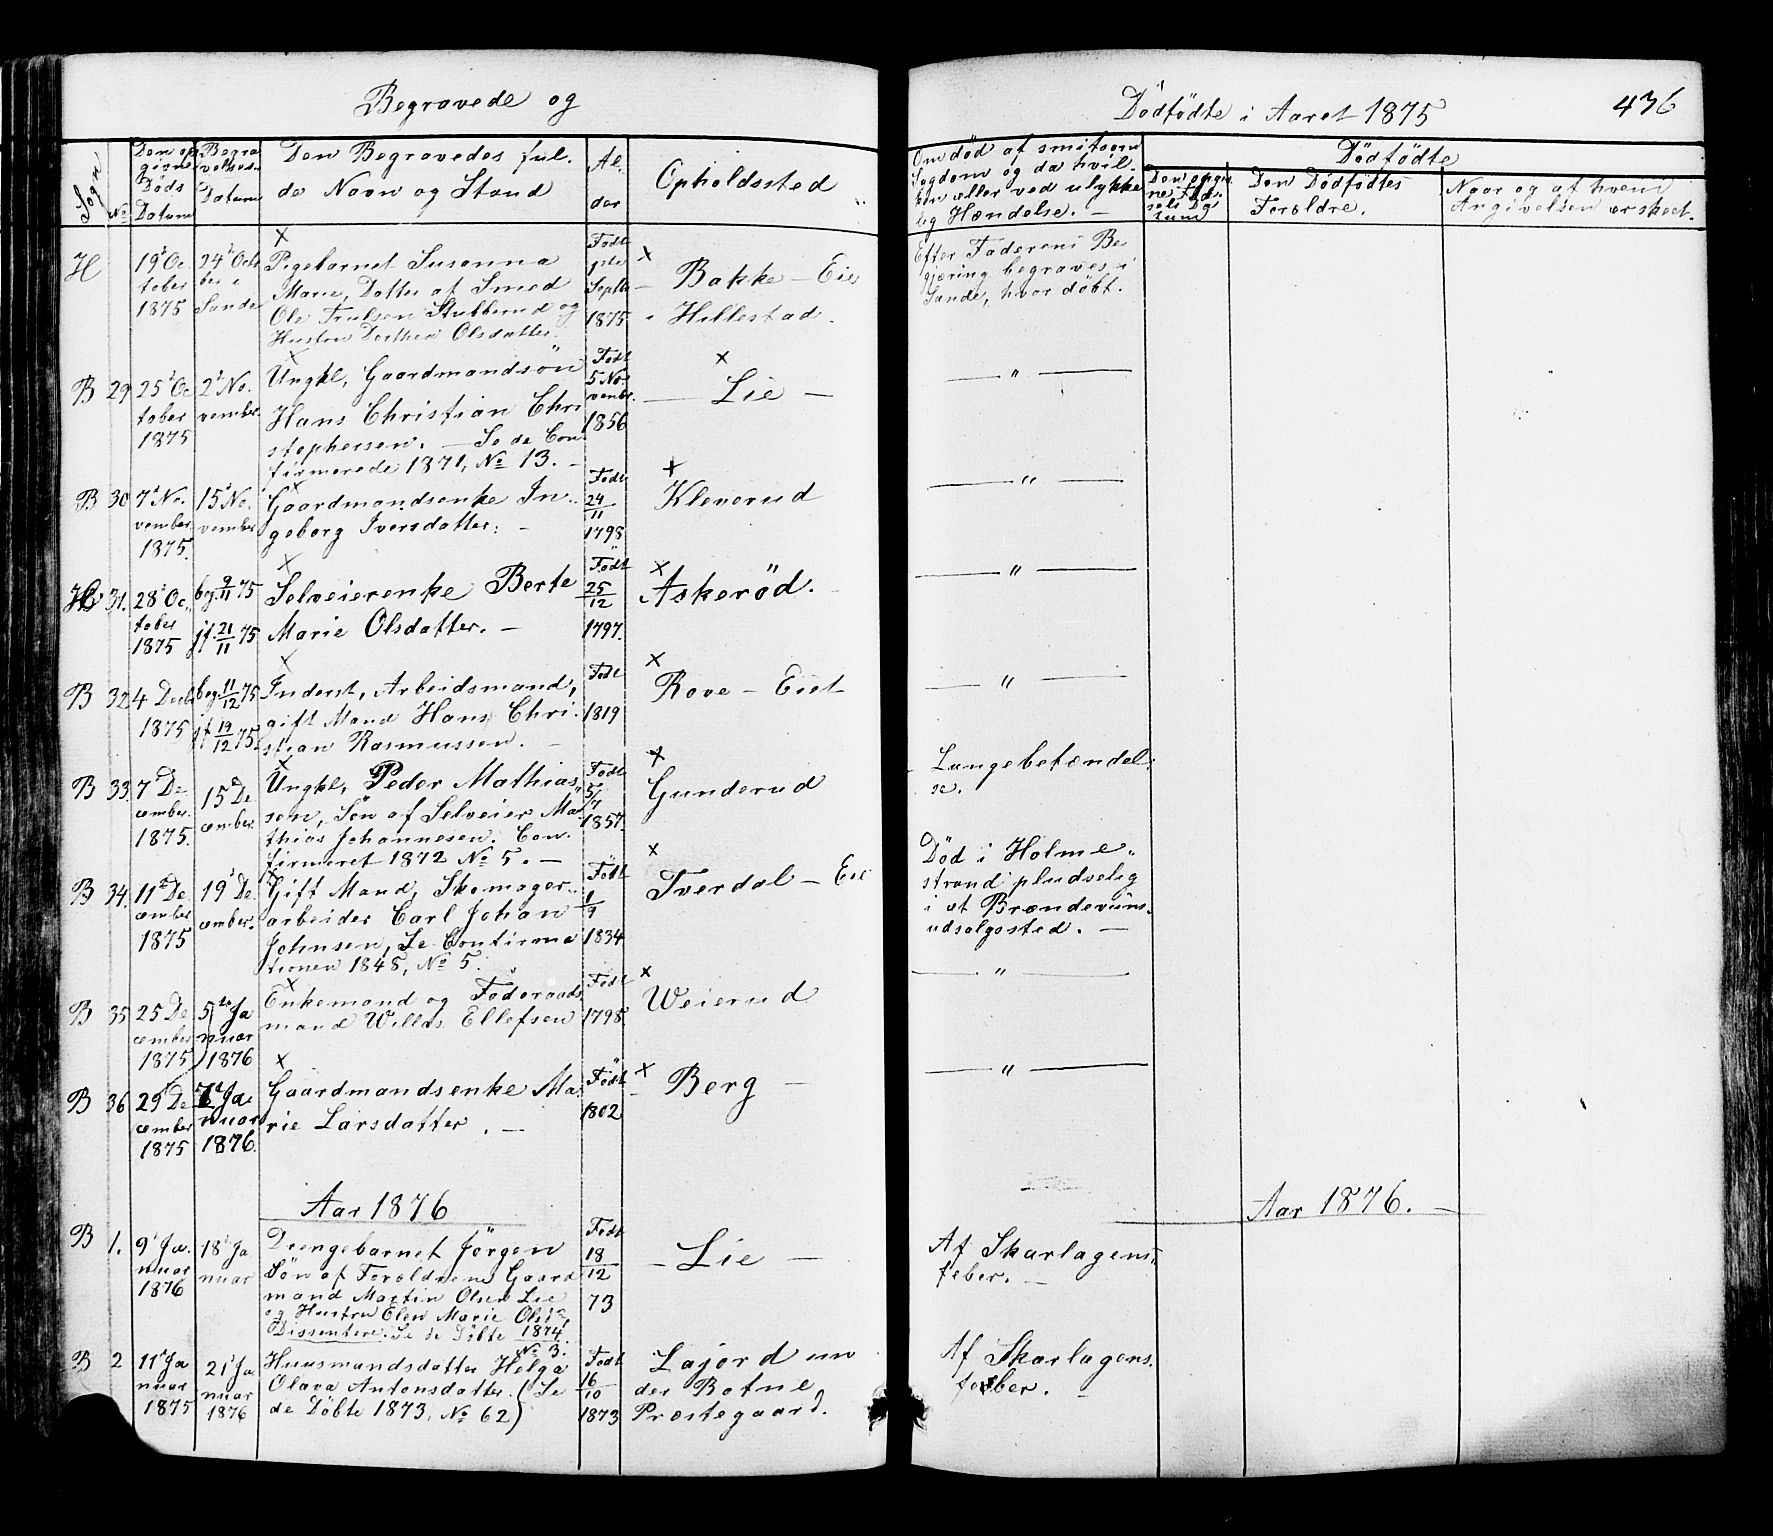 Begravede og
Dödfödte i Aaret 1875
436
Sogn
No
Den op-
givne
Döds
Datum
Begra
velses-
Datum
Den Begravedes ful.
de Navn og Stand
Al.
der
Opholdssted
Om död af smitsom
Sygdom og da hvil.
ken eller ved ulykke
lig Hændelse. —
Dödfödte
Den opgiv
ne Föd-
sels Da
tum
Den Dödfödtes
Foröldre.
Naar og af hvem
Angivelsen er skeet.
H
19' Oc
tober
1875
24' Octo
ber i
Sande
Pigebarnet Susanna
Marie, Datter af Smed
Ole Trulsen Stubberud og
Hustru Dorthea Olsdatter.
Födt
Septbr
1875
Bakke – Eie
Hillestad.
Efter Faderens Be
gjæring begraves i
Sande, hvor döbt.
B 29
25' Oc
tober
1875
2' No.
vember.
Ungkl, Gaardmandsön
Hans Christian Chri
stophersen. — Se de Con
firmerede 1871, No 13. –
Födt
5 No
vembr.
1856
— Lie –
— „ —
B 30
7' No.
vember
1875.
15' No.
vember
Gaardmandsenke In-
geborg Iversdatter. –
Födt
24
11
1798
Kleverud
— „ —
H 31.
28' Oc.
tober
1875
beg. 9/11 75
jf. 21/11 75
Selveierenke Berte
Marie Olsdatter. –
Födt
25
12
1797.
Askeröd.
— „ —
B 32
4 Decb
1875
beg. 11/12 75
jf 19/12 75.
Inderst, Arbeidsmand,
gift Mand Hans Chri-
stian Rasmussen. –
Födt
1819
Rove – Eiet
— „ —
B 33.
7' De
cember.
1875.
15' De
cember.
Ungkl, Peder Mathias
sen, Sön af Selveier Ma-
thias Johannesen. Con-
firmeret 1872 No 5. –
Födt
5/7
1857.
Gunderud
Lungebetændel-
se.
B 34.
11' De
cember
1875
19' De.
cember.
Gift Mand, Skomager-
arbeider Carl Johan
Johnsen, Se Confirma
tionen 1848, No 5.
Födt
1
9
1834
Tverdal – Eie
Död i Holme-
strand pludselig
i et Brændeviins-
udsalgssted. —
B 35
25 De
cember
1875
5te Ja
nuar
1876
Enkemand og Föderaads
mand Willas Ellefsen
Födt
1798.
Weierud
— „ —
B 36
29' De
cember
1875
7' Ja.
nuar
1876.
Gaardmandsenke Ma.
rie Larsdatter. –
Födt
1802
Berg –
— „ —
Aar 1876
Aar 1876. –
B 1.
9' Ja.
nuar
1876
18' Ja
nuar
Drengebarnet Jörgen
Sön af Foröldrene Gaard
mand Martin Olsen Lie
og Hustru Elen Marie Olsd.
Dissentere. Se de Döbte 1874.
No 3.
Födt
18
12
73
– Lie –
Af Skarlagens-
feber. –
B 2
11' Ja
nuar
1875
21' Ja
nuar
1876
Huusmandsdatter Helga
Olava Antonsdatter. (Se
de Döbte 1873, No 62)
Födt
16
10
1873
Lajord un
der Botne
Præstegaard.
Af Skarlagens.
feber. –